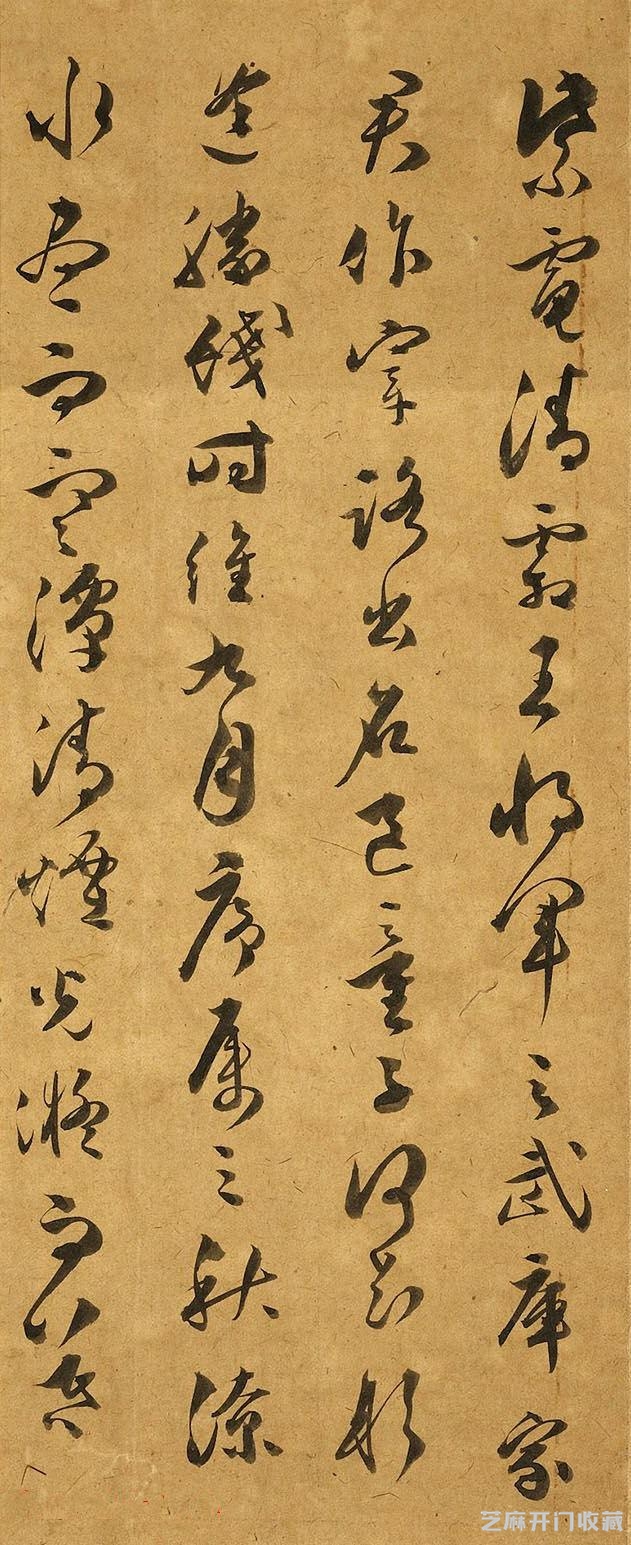 紫電清霜王將軍之武庫家
君作宰路出名區童子何知躬
逢勝餞時維九月序屬三秋潦
水盡而寒潭清煙光凝而
芝麻开门收藏